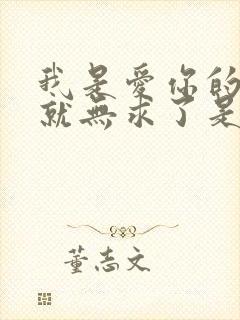 我是愛你的
就無求了是
董志文